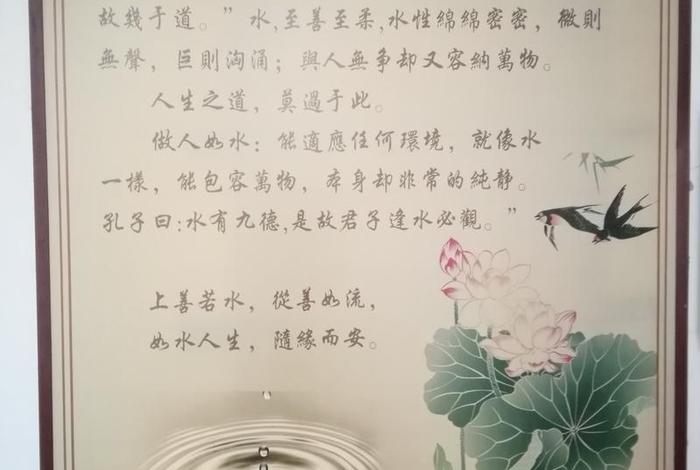 故幾于道。”水,至善至柔,水性綿綿密密,微則
無聲，巨則洶涌；與人無争却又容納萬物。
人生之道，莫過于此。
做人如水：能適應任何環境，就像水
一樣，能包容萬物，本身却非常的純静。
孔子曰:水有九德,是故君子逢水必觀。”
上善若水，從善如流，
如水人生，隨緣而安。